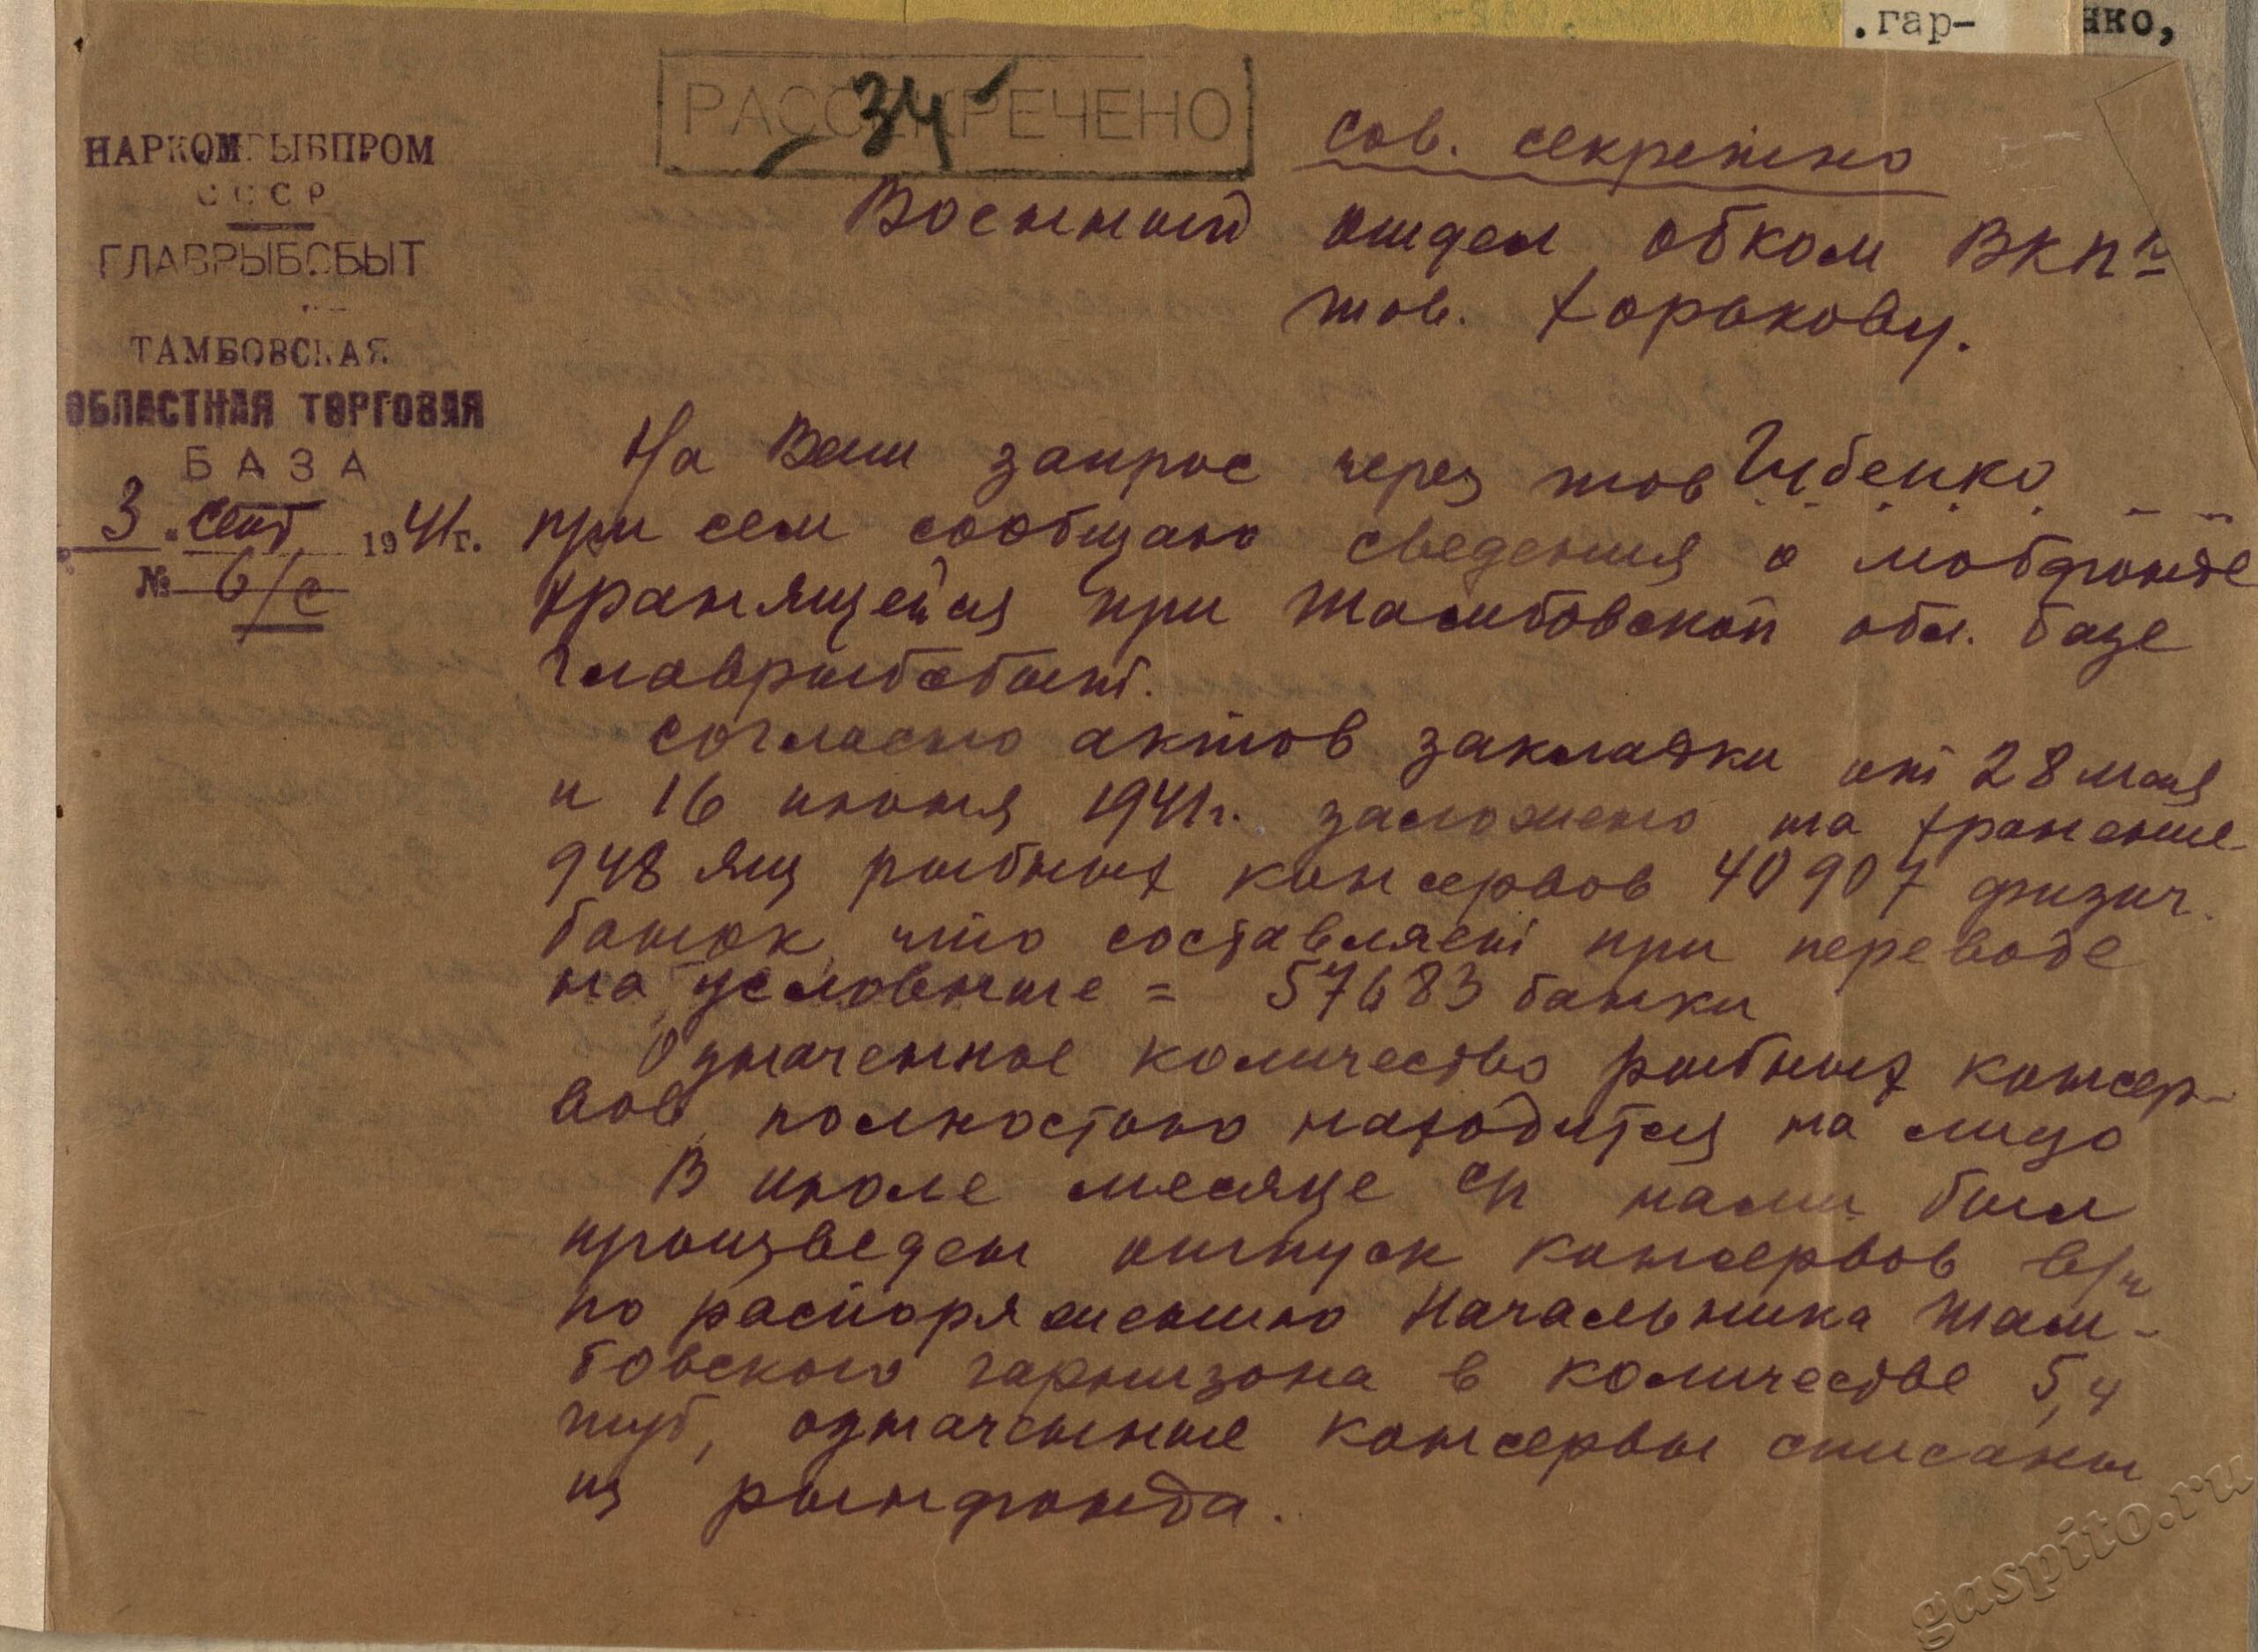 .гар-
нко,
РАССЕКРЕЧЕНО
34
НАРКОМРЫБПРОМ
СССР
ГЛАВРЫБСБЫТ
ТАМБОВСКАЯ
ОБЛАСТНАЯ ТОРГОВАЯ
БАЗА
3 " сент 1941г.
№ 6/с
Сов. секретно
Военный отдел обком ВКП
тов. Хорькову.
На Ваш запрос через тов Губенко
при сем сообщаю сведения о мобфонде
хранящейся при Тамбовской обл. базе
Главрыбсбыт.
Согласно актов закладки от 28 мая
и 16 июня 1941г. заложено на хранение
948 ящ рыбных консервов 40907 физич.
банок, что составляет при переводе
на условные = 57683 банки
Означенное количество рыбных консер-
вов полностью находится на лицо
В июле месяце с/г нами был
произведен отпуск консервов в/ч
по распоряжению Начальника Там-
бовского гарнизона в количестве 5,4
туб, означенные консервы списаны
из рынфонда.
gaspito.ru